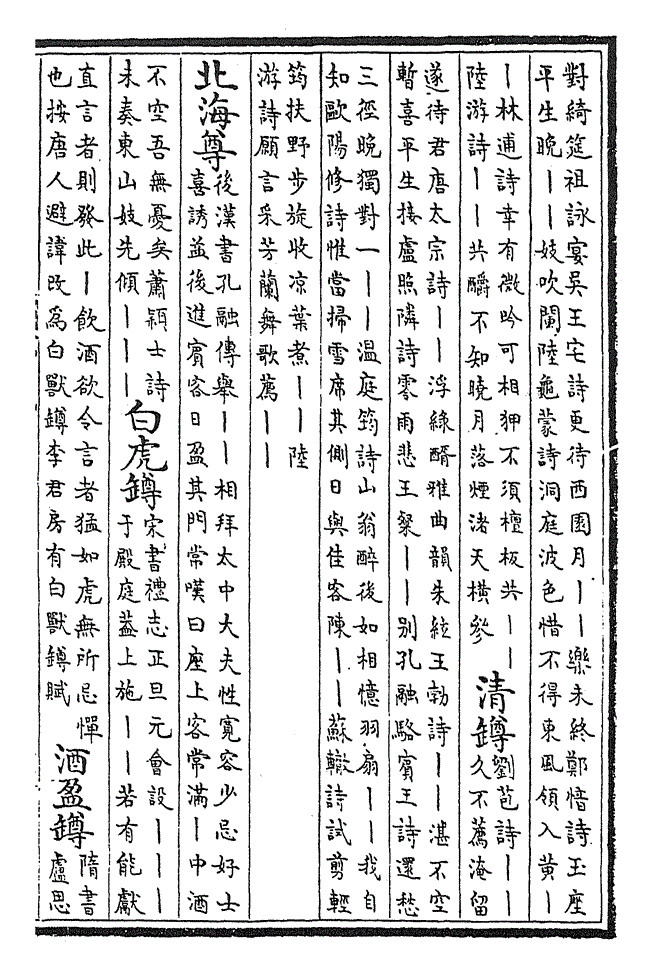 對綺筵祖詠宴吳王宅詩更待西園月丨丨樂未終鄭愔詩玉座
平生晚丨丨妓吹闌陸龜蒙詩洞庭波色惜不得東風領入黄丨
丨林逋詩幸有微吟可相狎不須檀板共丨丨
清鐏
劉苞詩丨丨
陸游詩丨丨共釂不知曉月落煙渚天横參
久不薦淹留
遂待君唐太宗詩丨丨浮緑醑雅曲韻朱絃王勃詩丨丨湛不空
暫喜平生接盧照隣詩零雨悲王粲丨丨别孔融駱賓王詩還愁
三徑晚獨對一丨丨温庭筠詩山翁醉後如相憶羽扇丨丨我自
知歐陽修詩惟當掃雪席其側日與佳客陳丨丨蘇轍詩試剪輕
筠扶野步旋收凉葉煮丨丨陸
游詩願言采芳蘭舞歌薦丨丨
北海尊
後漢書孔融傳舉丨丨相拜太中大夫性寛容少忌好士
喜誘益後進賓客日盈其門常嘆曰座上客常滿丨中酒
不空吾無憂矣蕭穎士詩
未奏東山妓先傾丨丨丨
白虎鐏
宋書禮志正旦元會設丨丨丨
于殿庭葢上施丨丨若有能獻
直言者則發此丨飲酒欲令言者猛如虎無所忌憚
也按唐人避諱改為白獸鐏李君房有白獸鐏賦
酒盈鐏
隋書
盧思